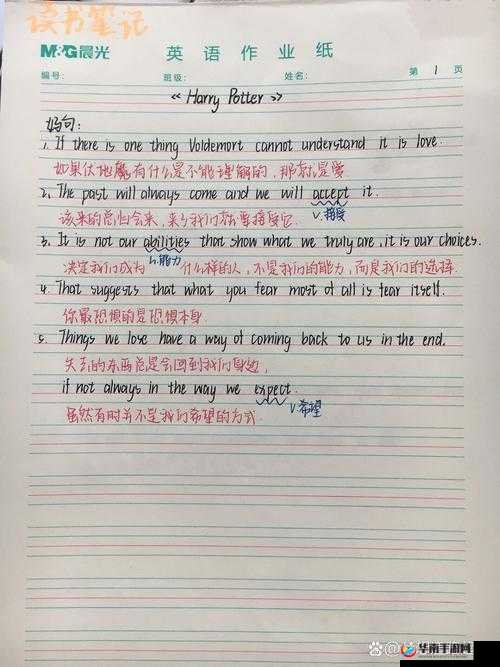 读书笔记
M&G晨光 英语作业纸
编号: 班级: 姓名: 第 1 页
《Harry Potter》
好句:
1. If there is one thing Voldemort cannot understand it is love.
如果伏地魔有什么是不能理解的，那就是爱
2. The past will always come and we will accept it.
该来的总归会来，来了我们就要接受它.
v.接受
3. It is not our abilities that show what we truly are, it is our choices.
n.能力
决定我们成为什么样的人，不是我们的能力，而是我们的选择.
4. That suggests that what you fear most of all is fear itself.
你最恐惧的是恐惧本身.
5. Things we lose have a way of coming back to us in the end.
失去的东西总是会回到我们身边,
if not always in the way we expect.
v.希望
虽然有时并不是我们希望的方式.
华南手游网